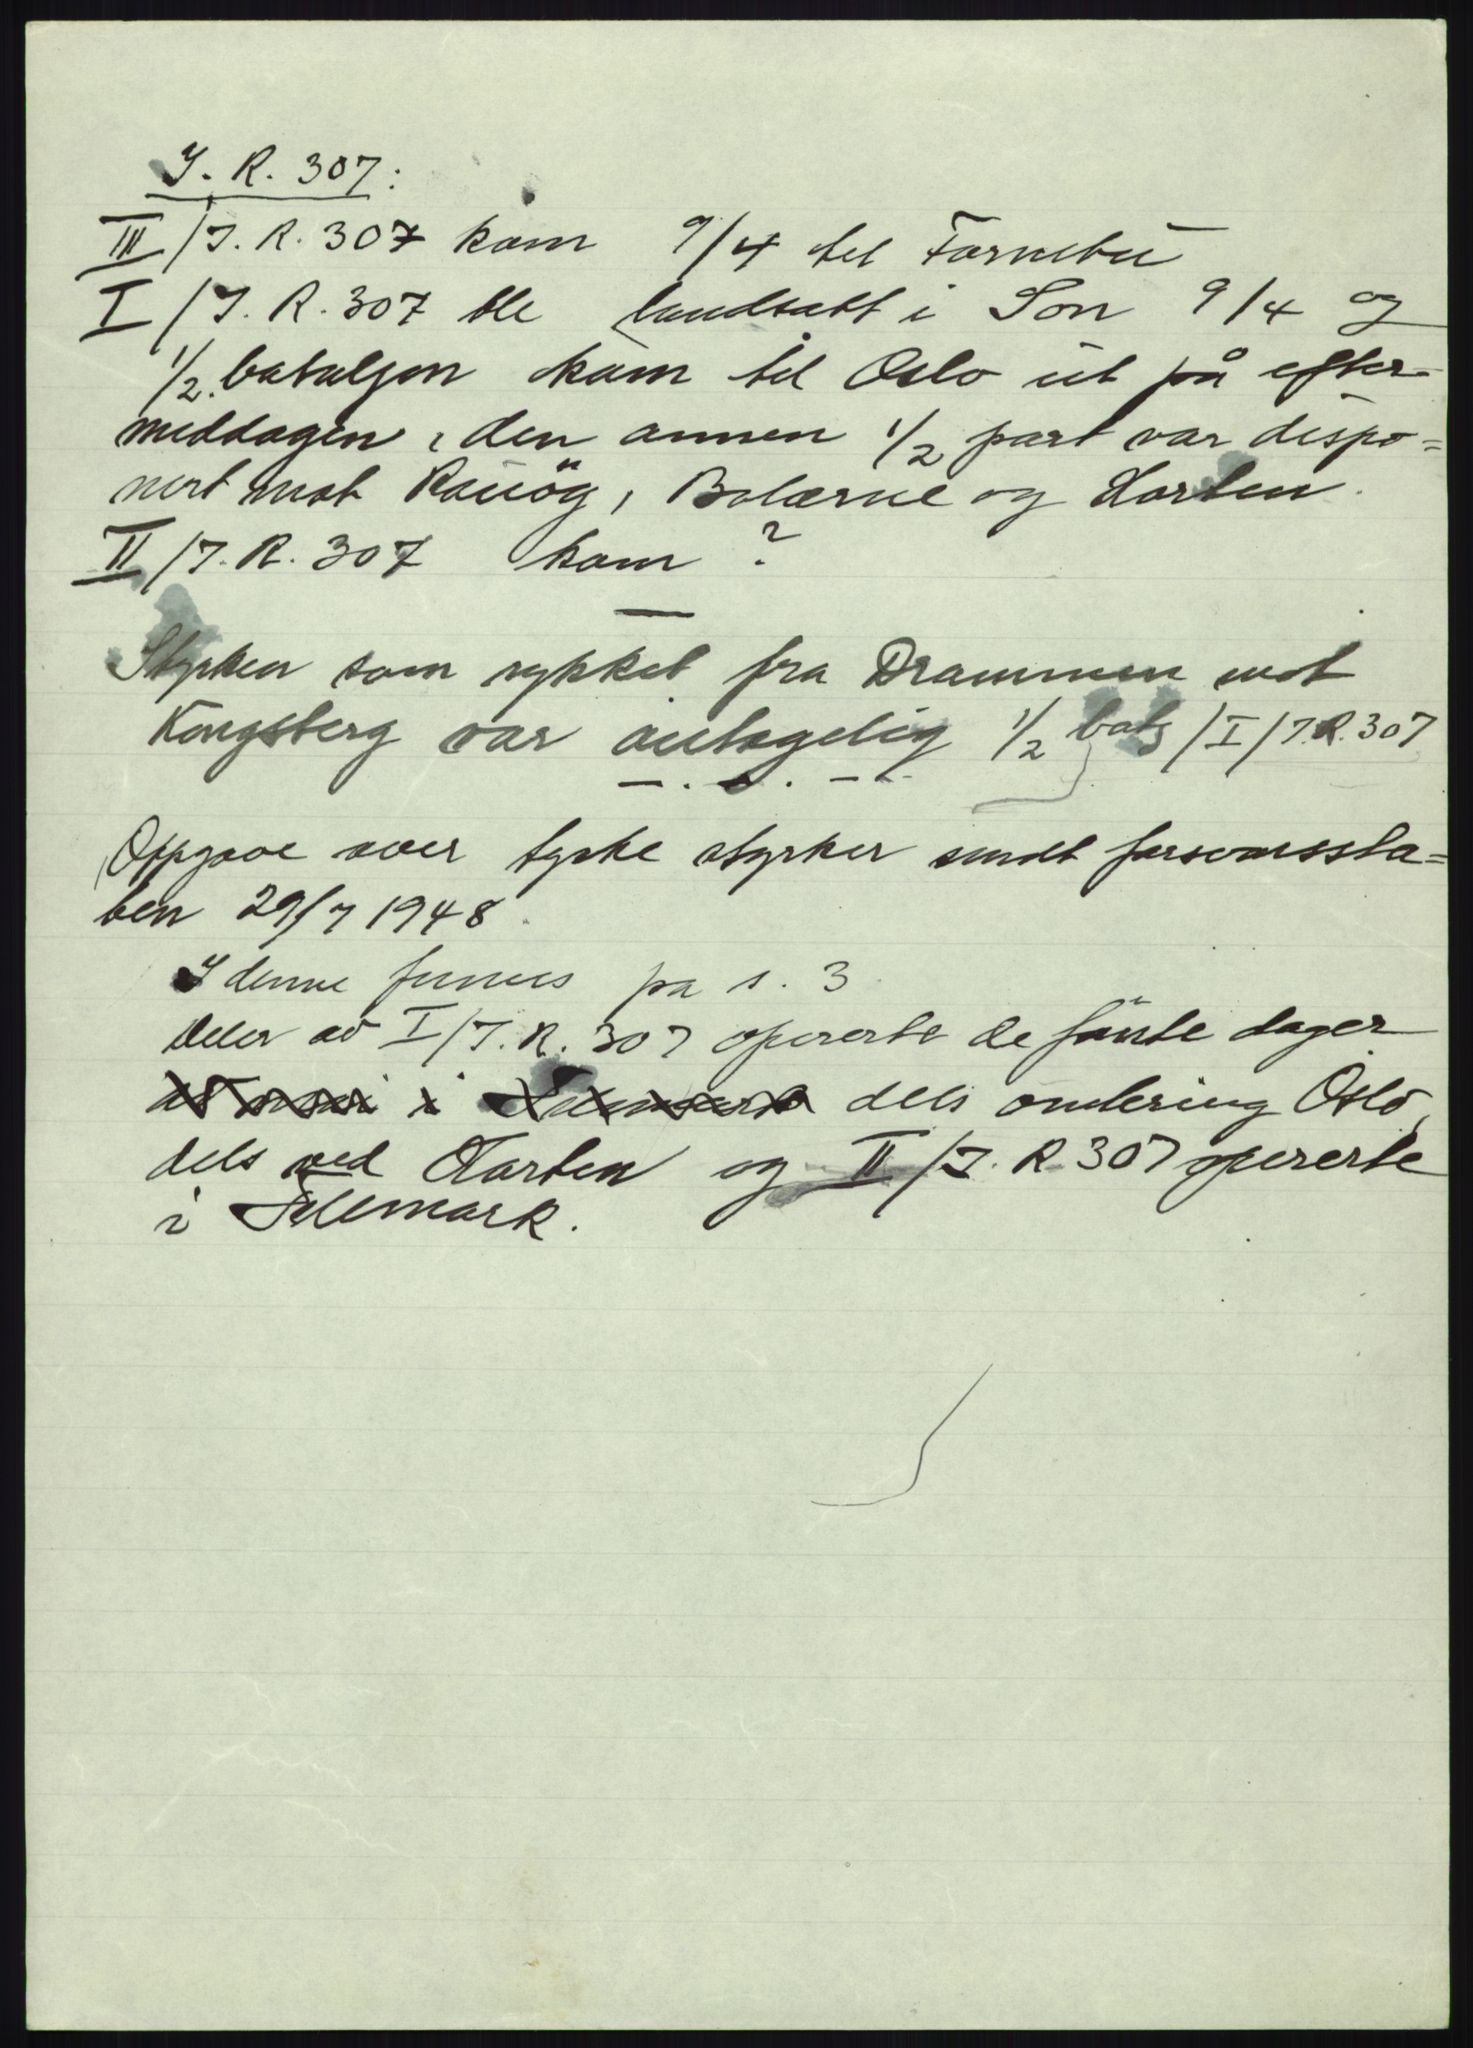 I. R. 307:
III/I. R. 307 kom 9/4 til Fornebu
I/I. R. 307 ble landsatt i Son 9/4 og
1/2 bataljon kom til Oslo ut på efter-
middagen, den annen 1/2 part var dispo=
nert mot Rauöy, Bolærne og Horten.
II/I. R. 307 kom ?
Styrken som rykket fra Drammen mot
Kongsberg var antagelig 1/2 batj/I/I.R. 307
Oppgave over tyske styrker sendt forsvarssta=
ben 29/7 1948.
I denne finnes på s. 3
deler av I/I. R. 307 opererte de første dager
i dels omkring Oslo,
dels ved Horten og II/I. R 307 opererte
i Telemark.